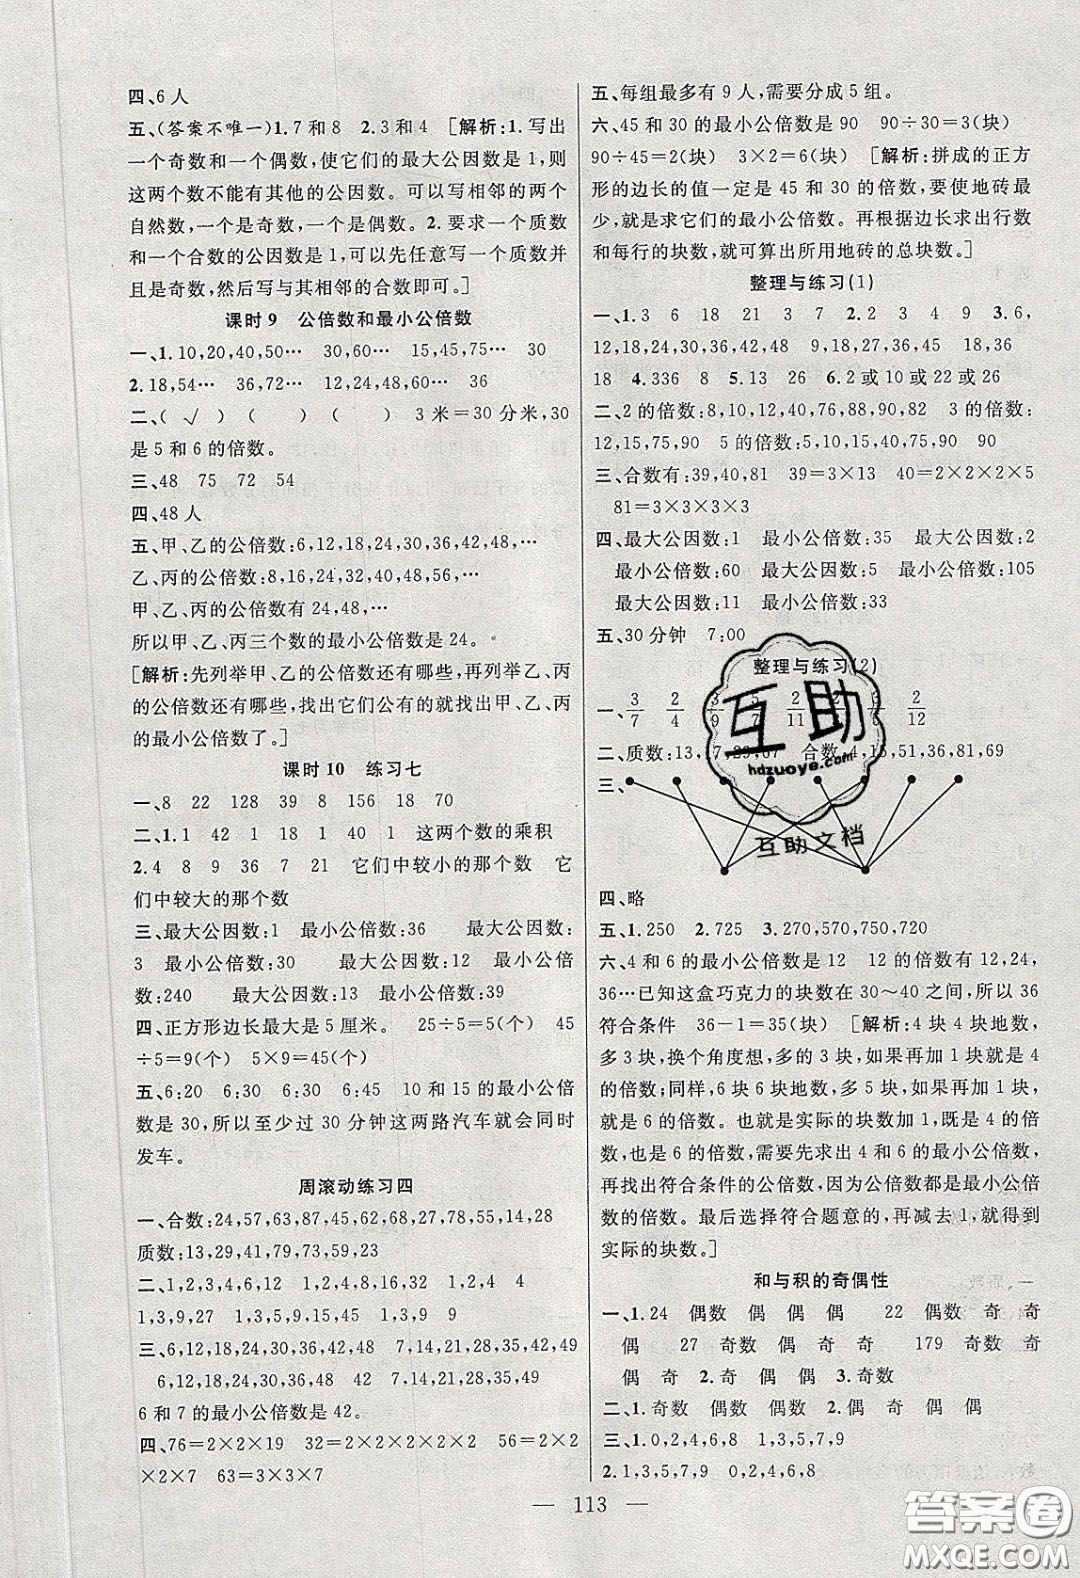 四、6人
五、(答案不唯一)1.7和8 2.3和4 [解析:1.写出
一个奇数和一个偶数,使它们的最大公因数是1,则
这两个数不能有其他的公因数。可以写相邻的两个
自然数,一个是奇数,一个是偶数。2.要求一个质数
和一个合数的公因数是1,可以先任意写一个质数
并且是奇数,然后写与其相邻的合数即可。]
课时9 公倍数和最小公倍数
一、1.10,20,40,50… 30,60… 15,45,75… 30
2.18,54… 36,72… 12,24,48,60… 36
二、( √ ) ( ) ( ) 3米=30分米,30
是5和6的倍数。
三、48 75 72 54
四、48人
五、甲、乙的公倍数:6,12,18,24,30,36,42,48,…
乙、丙的公倍数:8,16,24,32,40,48,…
甲、乙、丙的公倍数有24,48,…
所以甲、乙、丙三个数的最小公倍数是24。
[解析:先列举甲、乙的公倍数有哪些,再列举乙、丙
的公倍数还有哪些,找出它们公有的并且是最小的
的最小公倍数了。]
课时10 练习七
一、8 22 128 39 8 156 18 70
二、1.1 42 1 18 1 40 1 这两个数的乘积
2.4 8 9 36 7 21 它们中较小的那个数 它
们中较大的那个数
三、最大公因数:1 最小公倍数:36 最大公因数:
3 最小公倍数:30 最大公因数:12 最小公倍
数:240 最大公因数:13 最小公倍数:39
四、正方形边长最大是5厘米。 25÷5=5(个) 45
÷5=9(个) 5×9=45(个)
五、6:20 6:30 6:30 6:45 10和15的最小公倍
数是30,所以至少过30分钟这两路汽车就会同时
发车。
周滚动练习四
一、合数:24,57,63,87,45,62,68,27,78,55,14,28
质数:13,29,41,79,53,59,23
二、1,2,3,4,6,9 1,2,4,5 1,2,4 4
1,3,9,27 1,2,3,6,9 1,3,9 9
三、6,12,18,24,30,36,42,48 7,14,21,28,35,42,49
6,12,18,24,30,36,42,48 7,14,21,28,35,42,49
6和7的最小公倍数是42。
四、76=2×2×19 32=2×2×2×2×2 56=2×2
×2×7 63=3×3×7
五、每组最多有9人,需要分成5组。
六、45和30的最小公倍数是90 90÷30=3(块)
90÷45=2(块) 3×2=6(块) [解析:拼成的正方
形的边长的值一定是45和30的倍数,要使地砖最
少,就是求它们的最小公倍数。再根据边长求出行数
和每行的块数,就可算出所用地砖的总块数。]
整理与练习(1)
一、1.3 6 18 21 3 7 2.2 3 4 9 3.6,
12,18,24,30,36,42,48 9,18,27,36,45 18,36
18 4.336 8 5.13 26 6.2或10或22或26
二、2的倍数:8,10,12,40,76,88,90,82 3的倍数:
12,15,75,90 5的倍数:5,10,15,40,75,90 90
三、合数有:39,40,81 39=3×13 40=2×2×2×5
81=3×3×3×3
四、最大公因数:1 最小公倍数:35 最大公因数:2
最小公倍数:60 最大公因数:5 最小公倍数:105
最大公因数:11 最小公倍数:33
五、30分钟 7:00
整理与练习(2)
一、3/7 2/4 2/11 2/12
二、质数:13,17,29,67 合数:4,15,51,36,81,69
三、
互助
hdzuoye.com
互助文档
四、略
五、1.250 2.725 3.270,570,750,720
六、4和6的最小公倍数是12 12的倍数有12,24,
36…已知这盒巧克力的块数在30～40之间,所以36
符合条件 36-1=35(块) [解析:4块4块地数,
多3块,换个角度想,如果再加1块,就是4
的倍数;同样,6块6块地数,多5块,如果再加1块,
就是6的倍数。也就是实际的块数加1,既是4的倍
数,也是6的倍数。所以先求出4和6的最小公倍数,
再找出符合条件的公倍数,因为公倍数都是最小公倍
数的倍数。最后选择符合题意的,再减去1,就得到
实际的块数。]
和与积的奇偶性
一、1.24 偶数 偶 偶 偶 22 偶数 奇 奇
偶 27 奇数 偶 奇 奇 179 奇数 奇 偶
偶 奇 奇 2.奇 偶 偶 3.奇数
二、1.奇数 偶数 偶数 2.偶 奇 偶 偶
三、1.0,2,4,6,8 1,3,5,7,9
2.1,3,5,7,9 0,2,4,6,8
— 113 —
答案圈
MXQE.COM